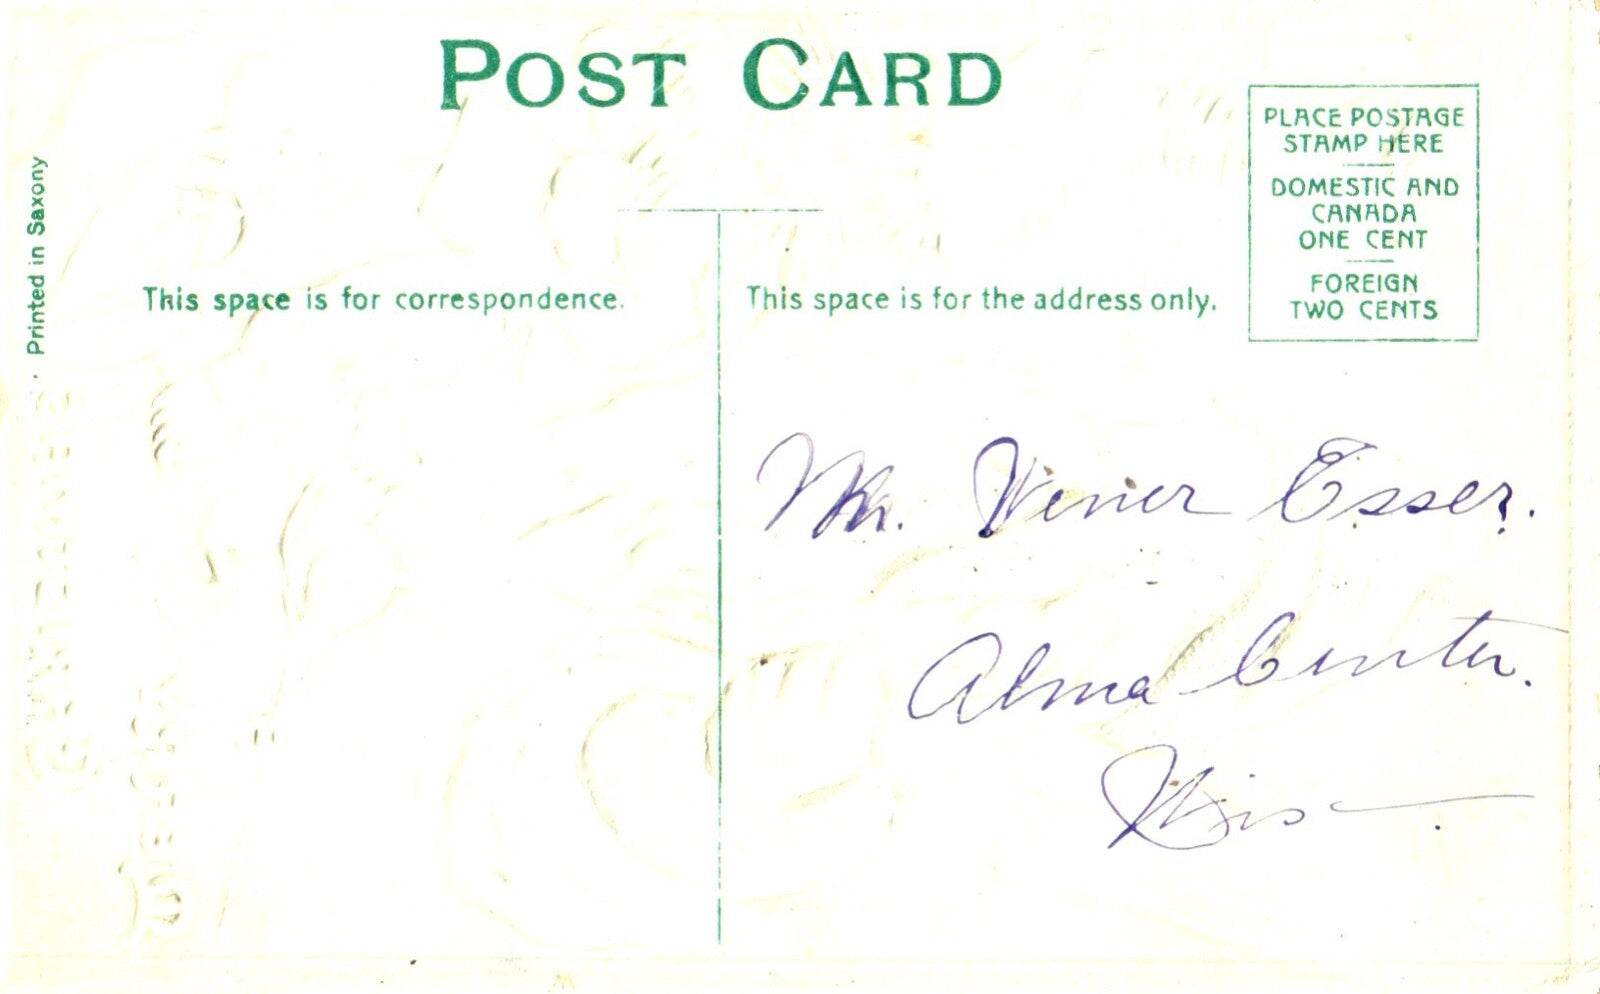 POST CARD
PLACE POSTAGE
STAMP HERE
DOMESTIC AND
CANADA
ONE CENT
FOREIGN
TWO CENTS
Printed in Saxony
This space is for correspondence.
This space is for the address only.
Mr. Verner Esser.
Alma Center.
Wis.